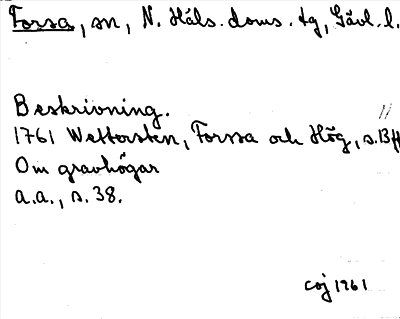 Forsa, sn, N. Häls. doms. tg, Gävl. l.
Beskrivning.
1761 Wettersten, Forssa och Hög, s. 13 ff
Om gravhögar
a.a., s. 38.
1961